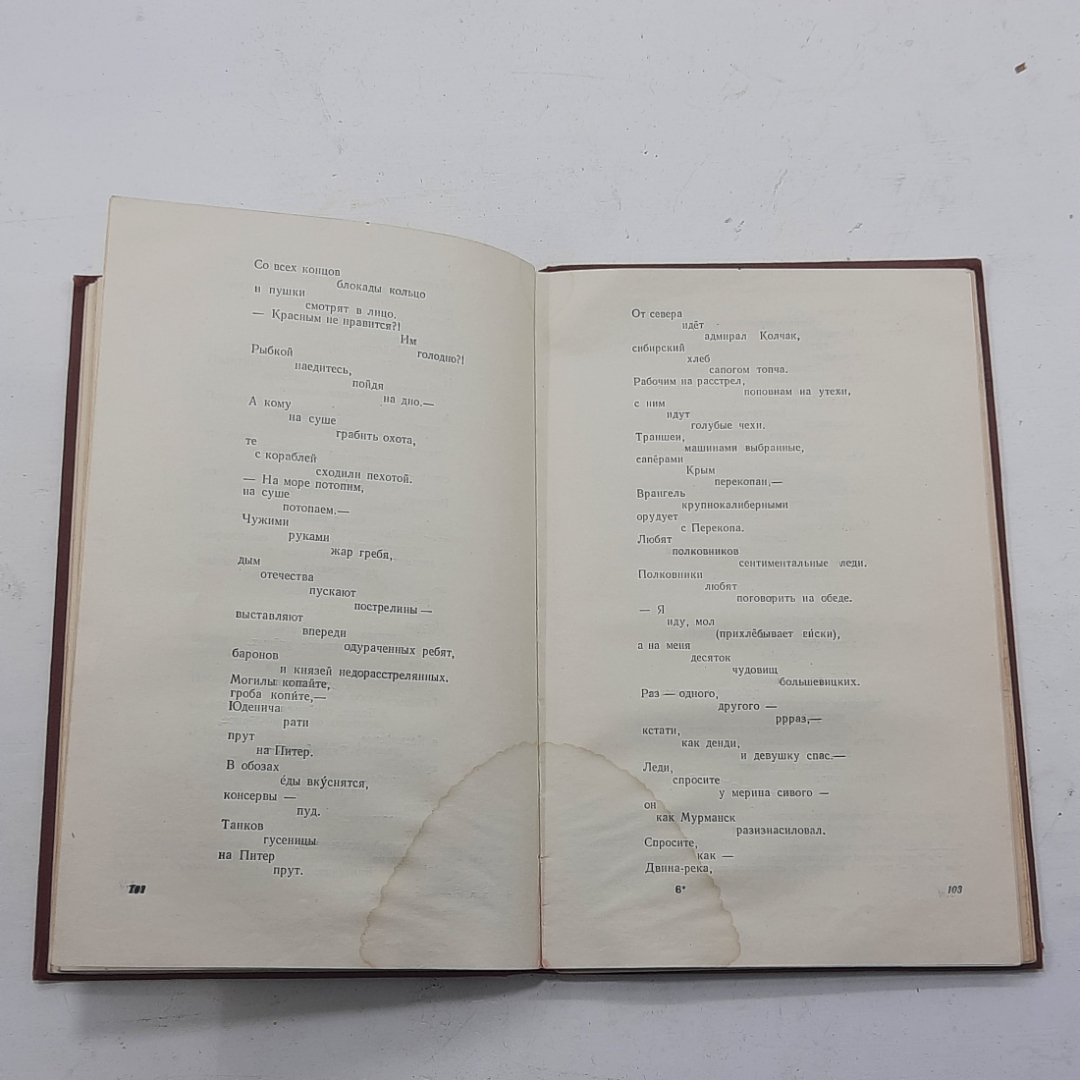 Со всех концов
блокады кольцо
и пушки
смотрят в лицо.
— Красным не нравится?!
Им
голодно?!
Рыбкой
наедитесь,
пойдя
на дно.—
А кому
на суше
грабить охота,
те
с кораблей
сходили пехотой.
— На море потопим,
на суше
потопаем.—
Чужими
руками
жар гребя,
дым
отечества
пускают
пострелины —
выставляют
впереди
одураченных ребят,
баронов
и князей недорасстрелянных.
Могилы копайте,
гроба копи́те,—
Юденича
рати
прут
на Питер.
В обозах
е́ды вку́снятся,
консервы —
пуд.
Танков
гусеницы
на Питер
прут.
От севера
идёт
адмирал Колчак,
сибирский
хлеб
сапогом топча.
Рабочим на расстрел,
поповнам на утехи,
с ним
идут
голубые чехи.
Траншеи,
машинами выбранные,
сапёрами
Крым
перекопан,—
Врангель
крупнокалиберными
орудует
с Перекопа.
Любят
полковников
сентиментальные леди.
Полковники
любят
поговорить на обеде.
— Я
иду, мол
(прихлёбывает ви́ски),
а на меня
десяток
чудовищ
большевицких.
Раз — одного,
другого —
ррраз,—
кстати,
как денди,
и девушку спас.—
Леди,
спросите
у мерина сивого —
он
как Мурманск
разизнасиловал.
Спросите,
как —
Двина-река,
6*
103